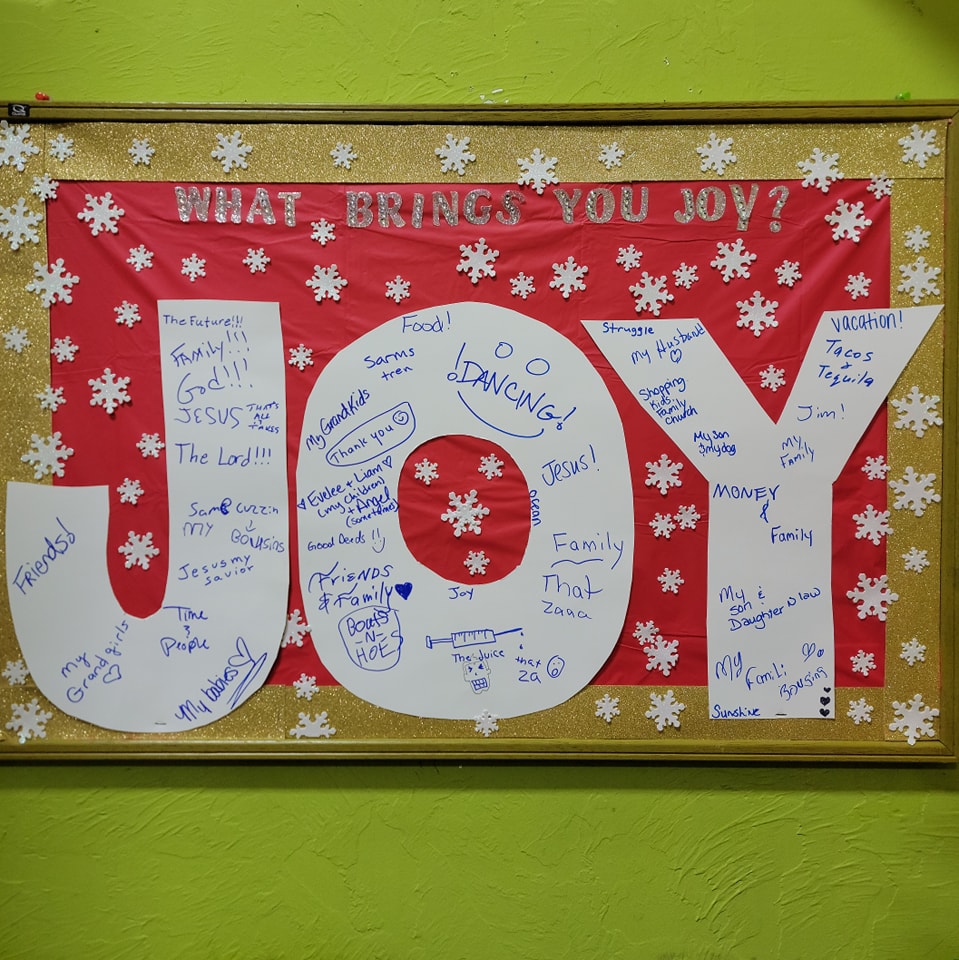 WHAT BRINGS YOU JOY?
JOY
The Future!!!
FAMILY!!!
God!!!
JESUS THAT'S
ALL it
TAKES
The Lord!!!
Same cuzzin
MY BOUSINS
Jesus my
savior
Time
&
People
Friends!
My
Grandgirls
My babies
Food!
Sarms
tren
!DANCING!
My Grandkids
Thank you
Evelee + Liam
(my children)
+ Angel
(sometimes)
Good Deeds!!
FRIENDS
& Family
BOATS
-N-
HOES
Jesus!
ocean
Family
That
zaaa
Joy
The Juice
that
za
Struggle
My Husband
Shopping
Kids
Family
Church
My son
& my dog
vacation!
Tacos
&
Tequila
Jim!
My
Family
MONEY
&
Family
My
son &
Daughter N law
My
Famili
BOUSINS
Sunshine